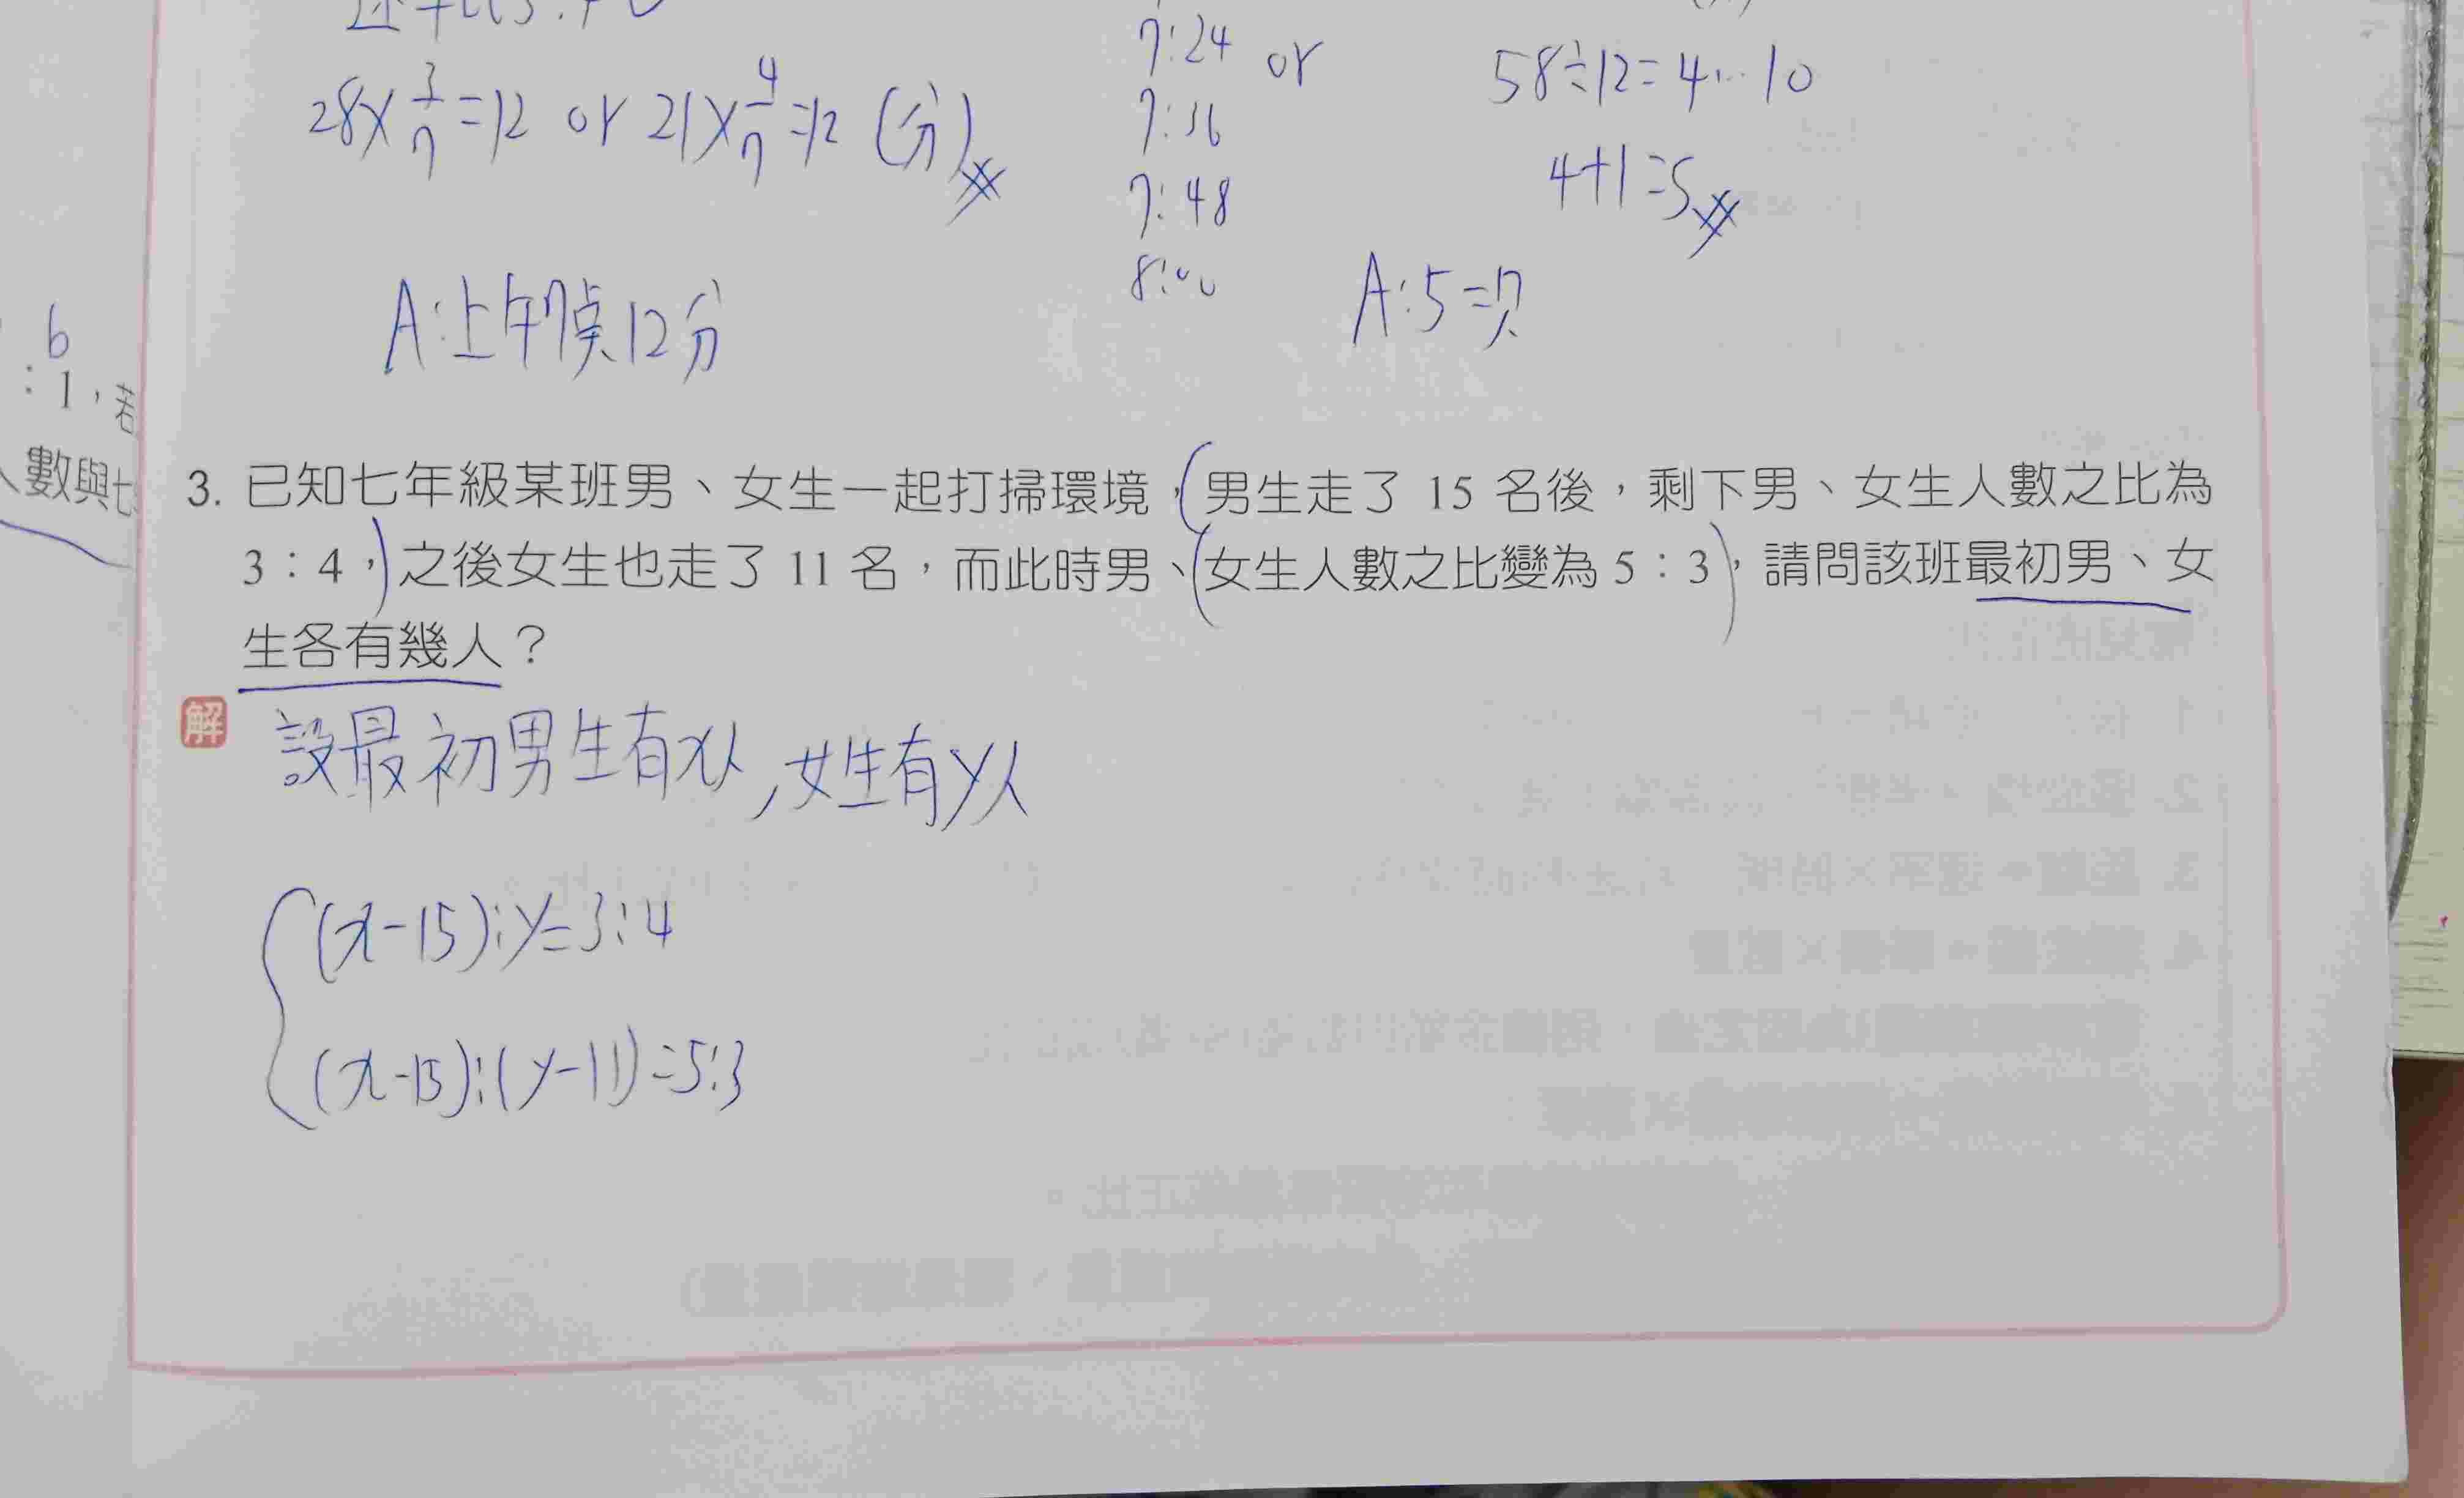 28×3/7=12 or 21×4/7=12 (分)
A:上午7点12分
7:24 or
7:36
7:48
8:00
58÷12=4…10
4+1=5
A:5次
6
:1,若
數與七
3. 已知七年級某班男、女生一起打掃環境,男生走了 15 名後,剩下男、女生人數之比為
3:4,之後女生也走了 11 名,而此時男、女生人數之比變為 5:3,請問該班最初男、女
生各有幾人?
解
設最初男生有x人,女生有y人
(x-15):y=3:4
(x-15):(y-11)=5:3